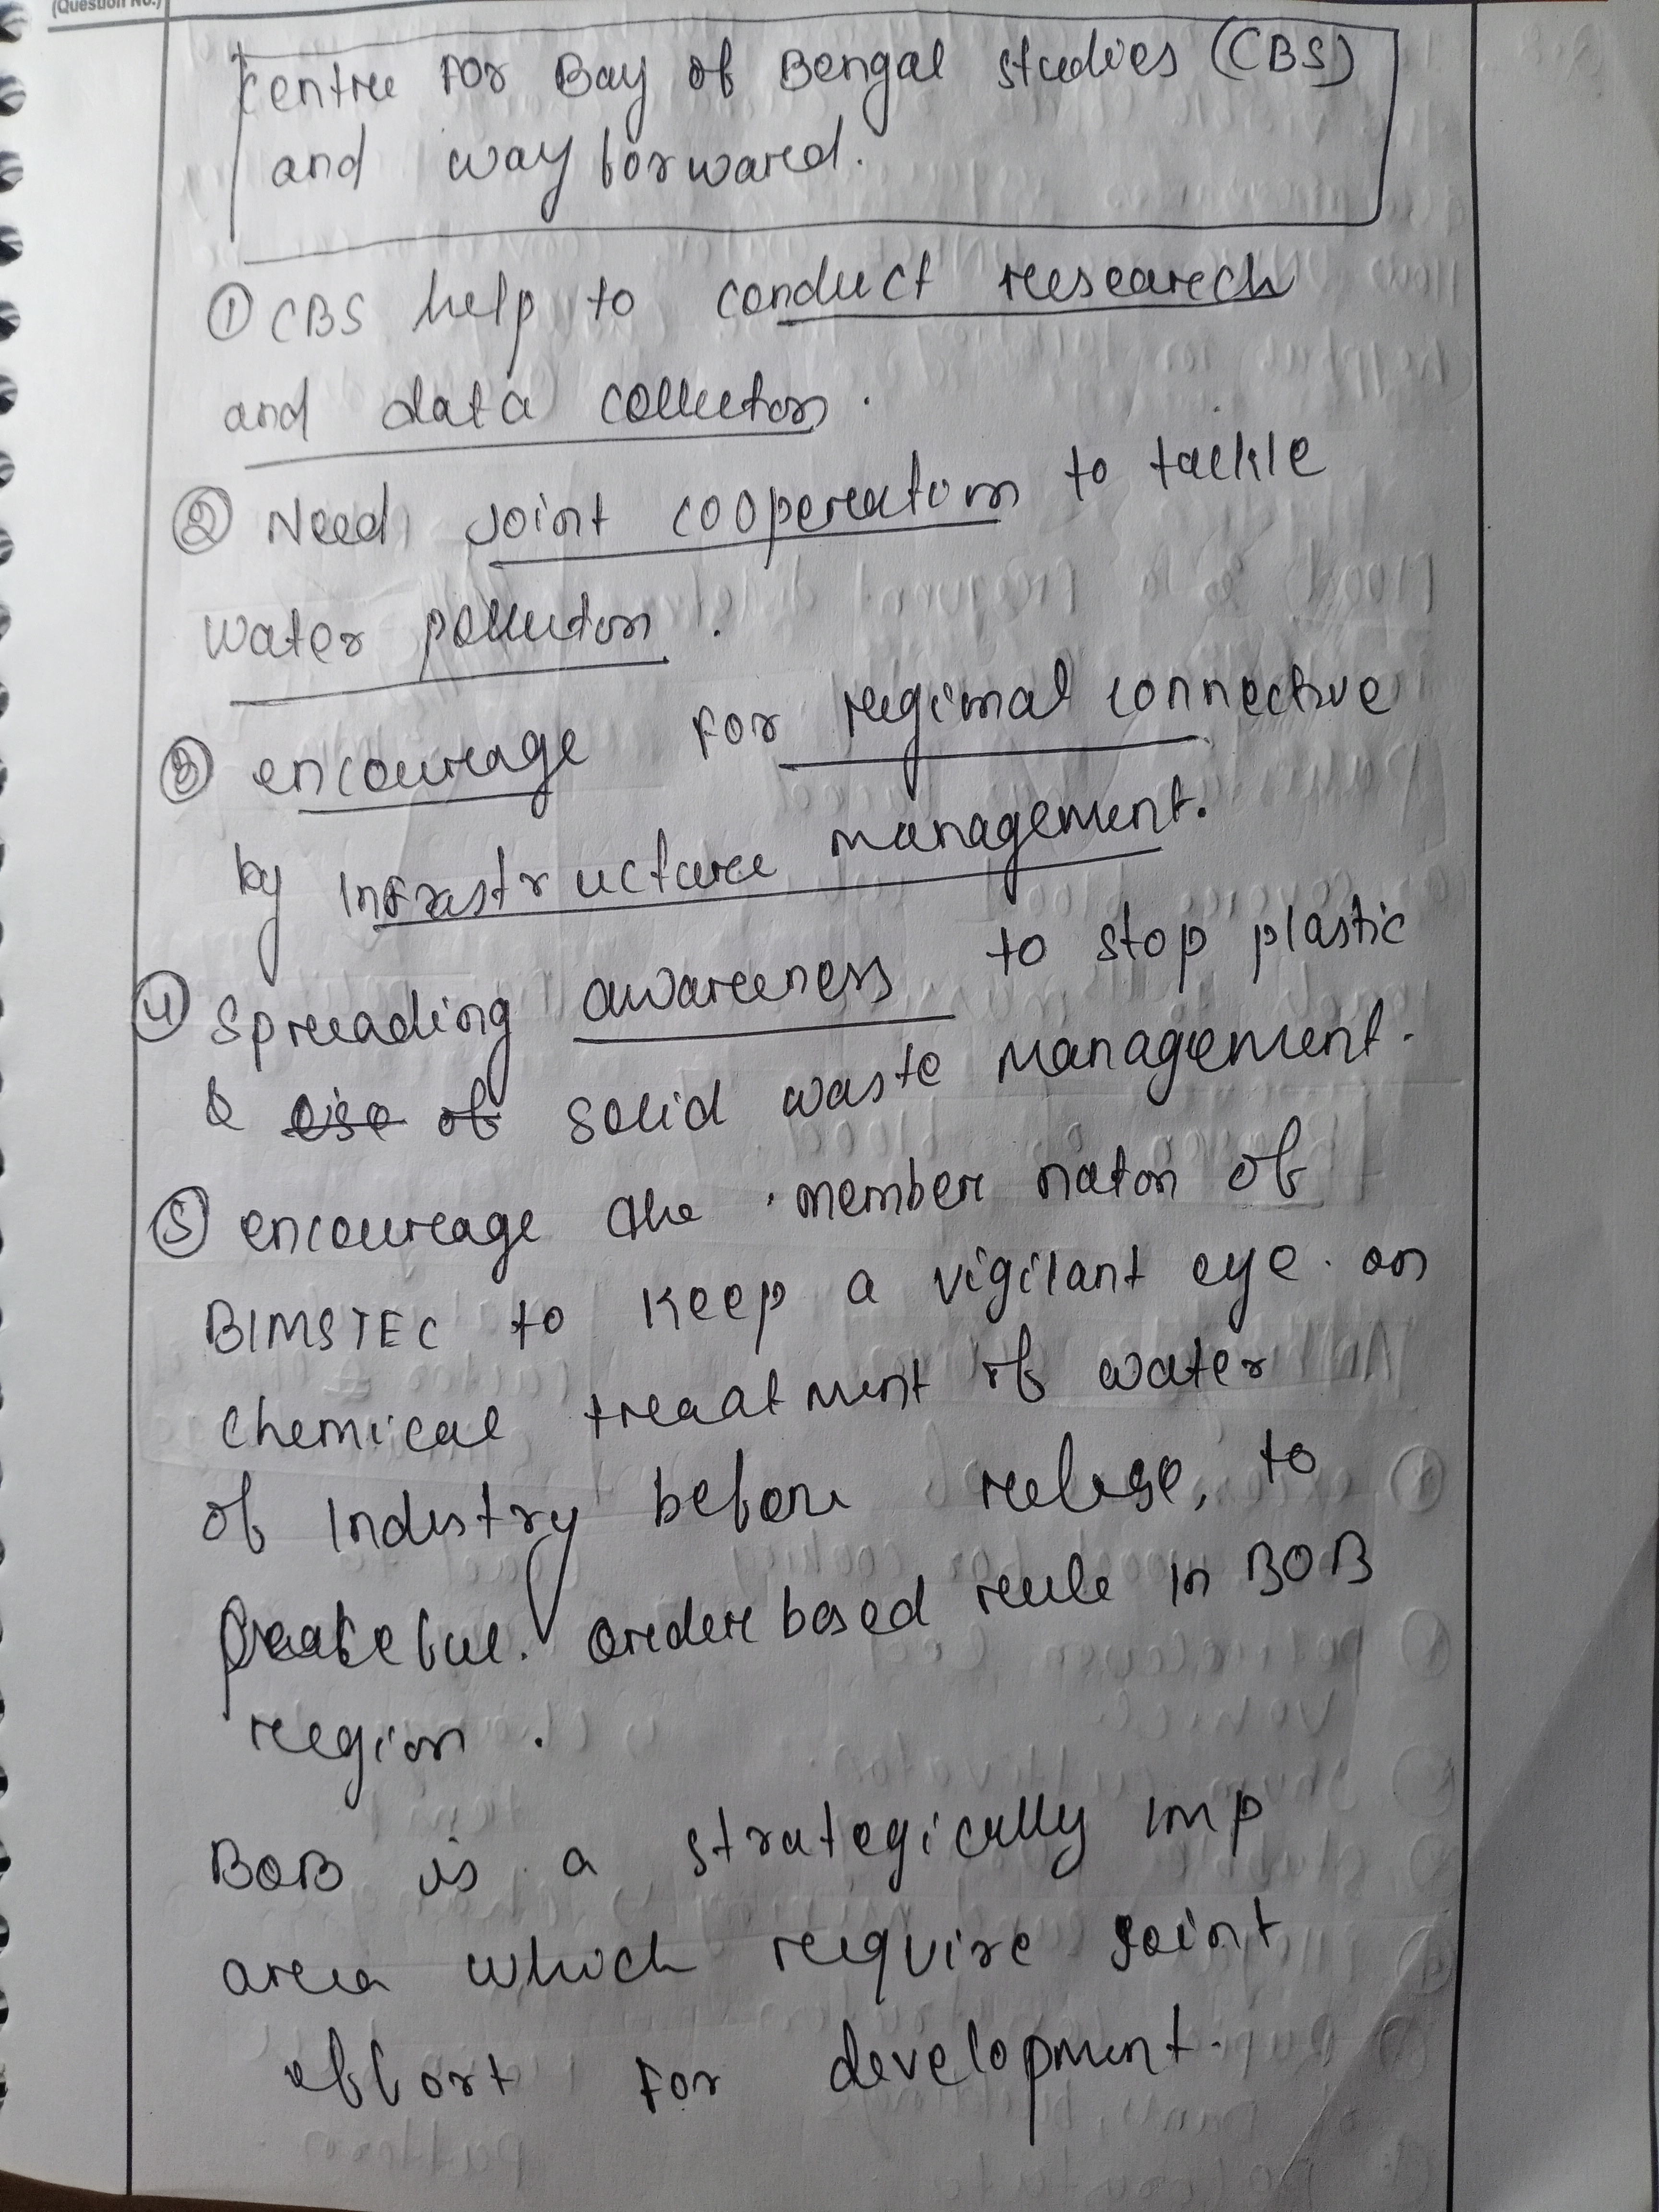 (Question No.)
Centre For Bay of Bengal studies (CBS)
and way forward.
① CBS help to conduct research
and data collection.
② Need joint cooperation to tackle
water pollution.
③ encourage For regional connective
by Infrastructure management.
④ Spreading awareness to stop plastic
& of solid waste management.
⑤ encourage the member nation of
BIMSTEC to keep a vigilant eye on
chemical treatment of water
of Industry before release, to
Peaceful. order based rule in BOB
region.
BOB is a strategically imp
area which require joint
effort For development.